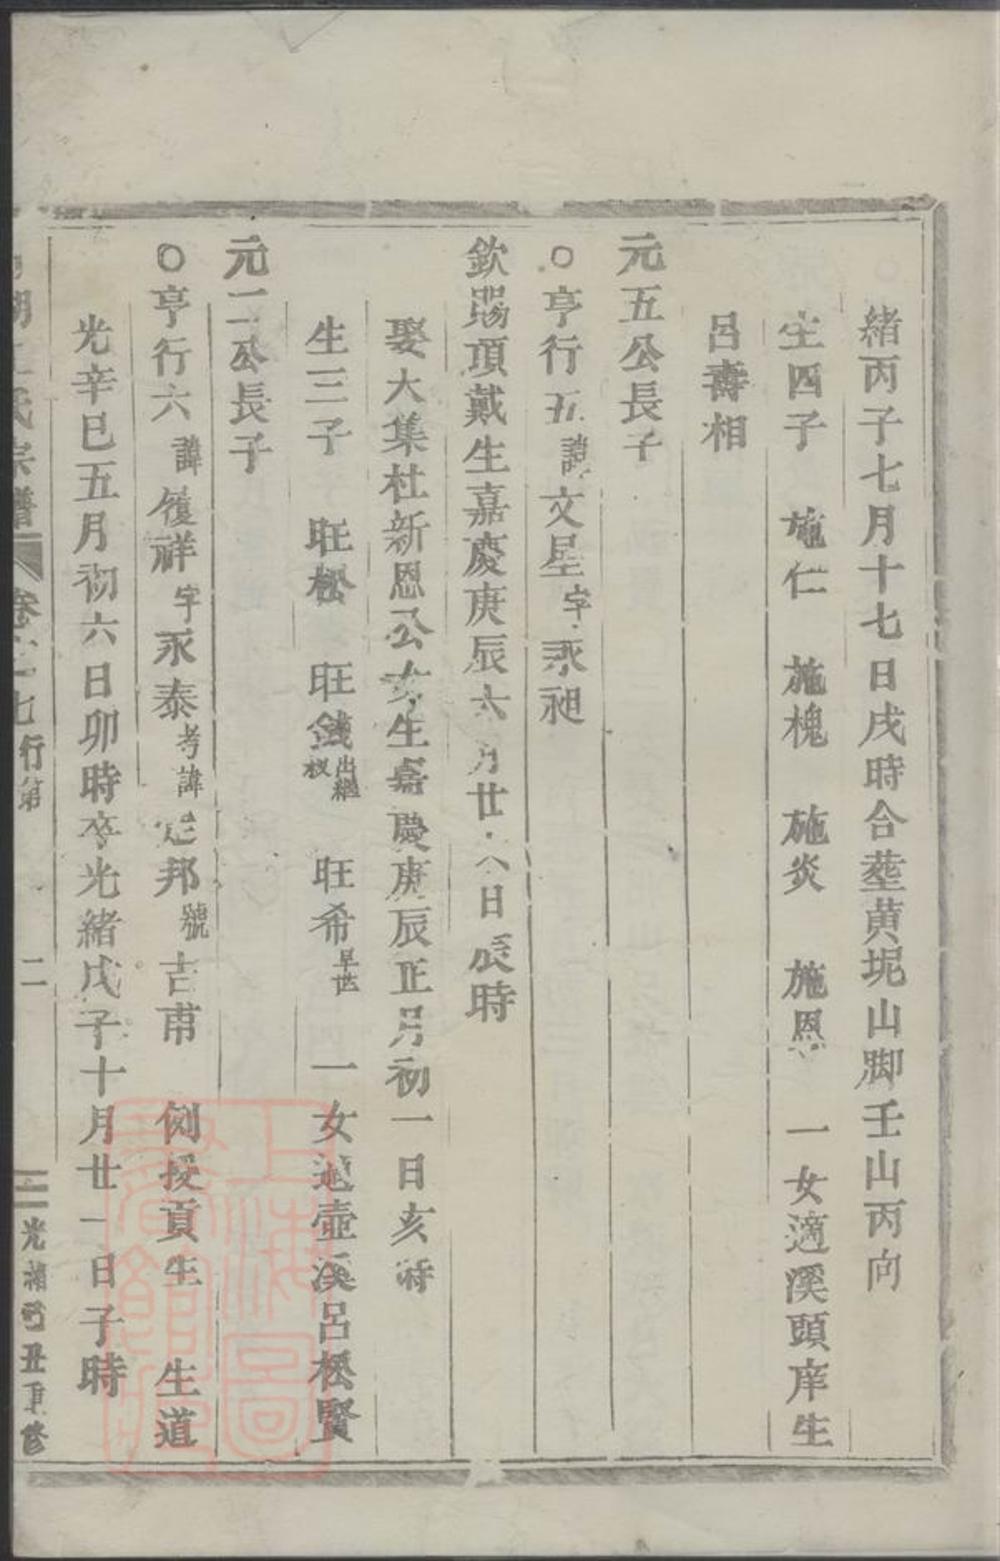 緒丙子七月十七日戌時合塟黄坭山脚壬山丙向
生四子 施仁 施槐 施炎 施恩 一女適溪頭庠生
呂壽相
元五公長子
○亨行五諱文星字永昶
欽賜頂戴生嘉慶庚辰六月廿八日辰時
娶大集杜新恩公女生嘉慶庚辰正月初一日亥時
生三子 旺松 旺錢出繼 旺希早世 一女適壺溪呂松賢
元二公長子
○亨行六諱履祥字永泰考諱定邦號吉甫 例授貢生 生道
光辛巳五月初六日卯時卒光緒戊子十月廿一日子時
氏宗譜 卷 七 行第 二 光緒己丑重修
上海圖書館藏